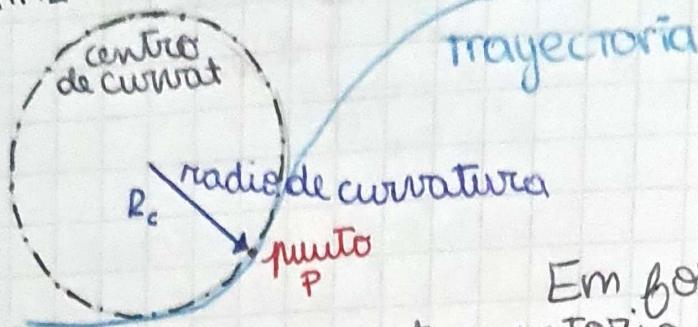 centro
de curvat
trayectoria
radio de curvatura
Rc
punto
P
Em